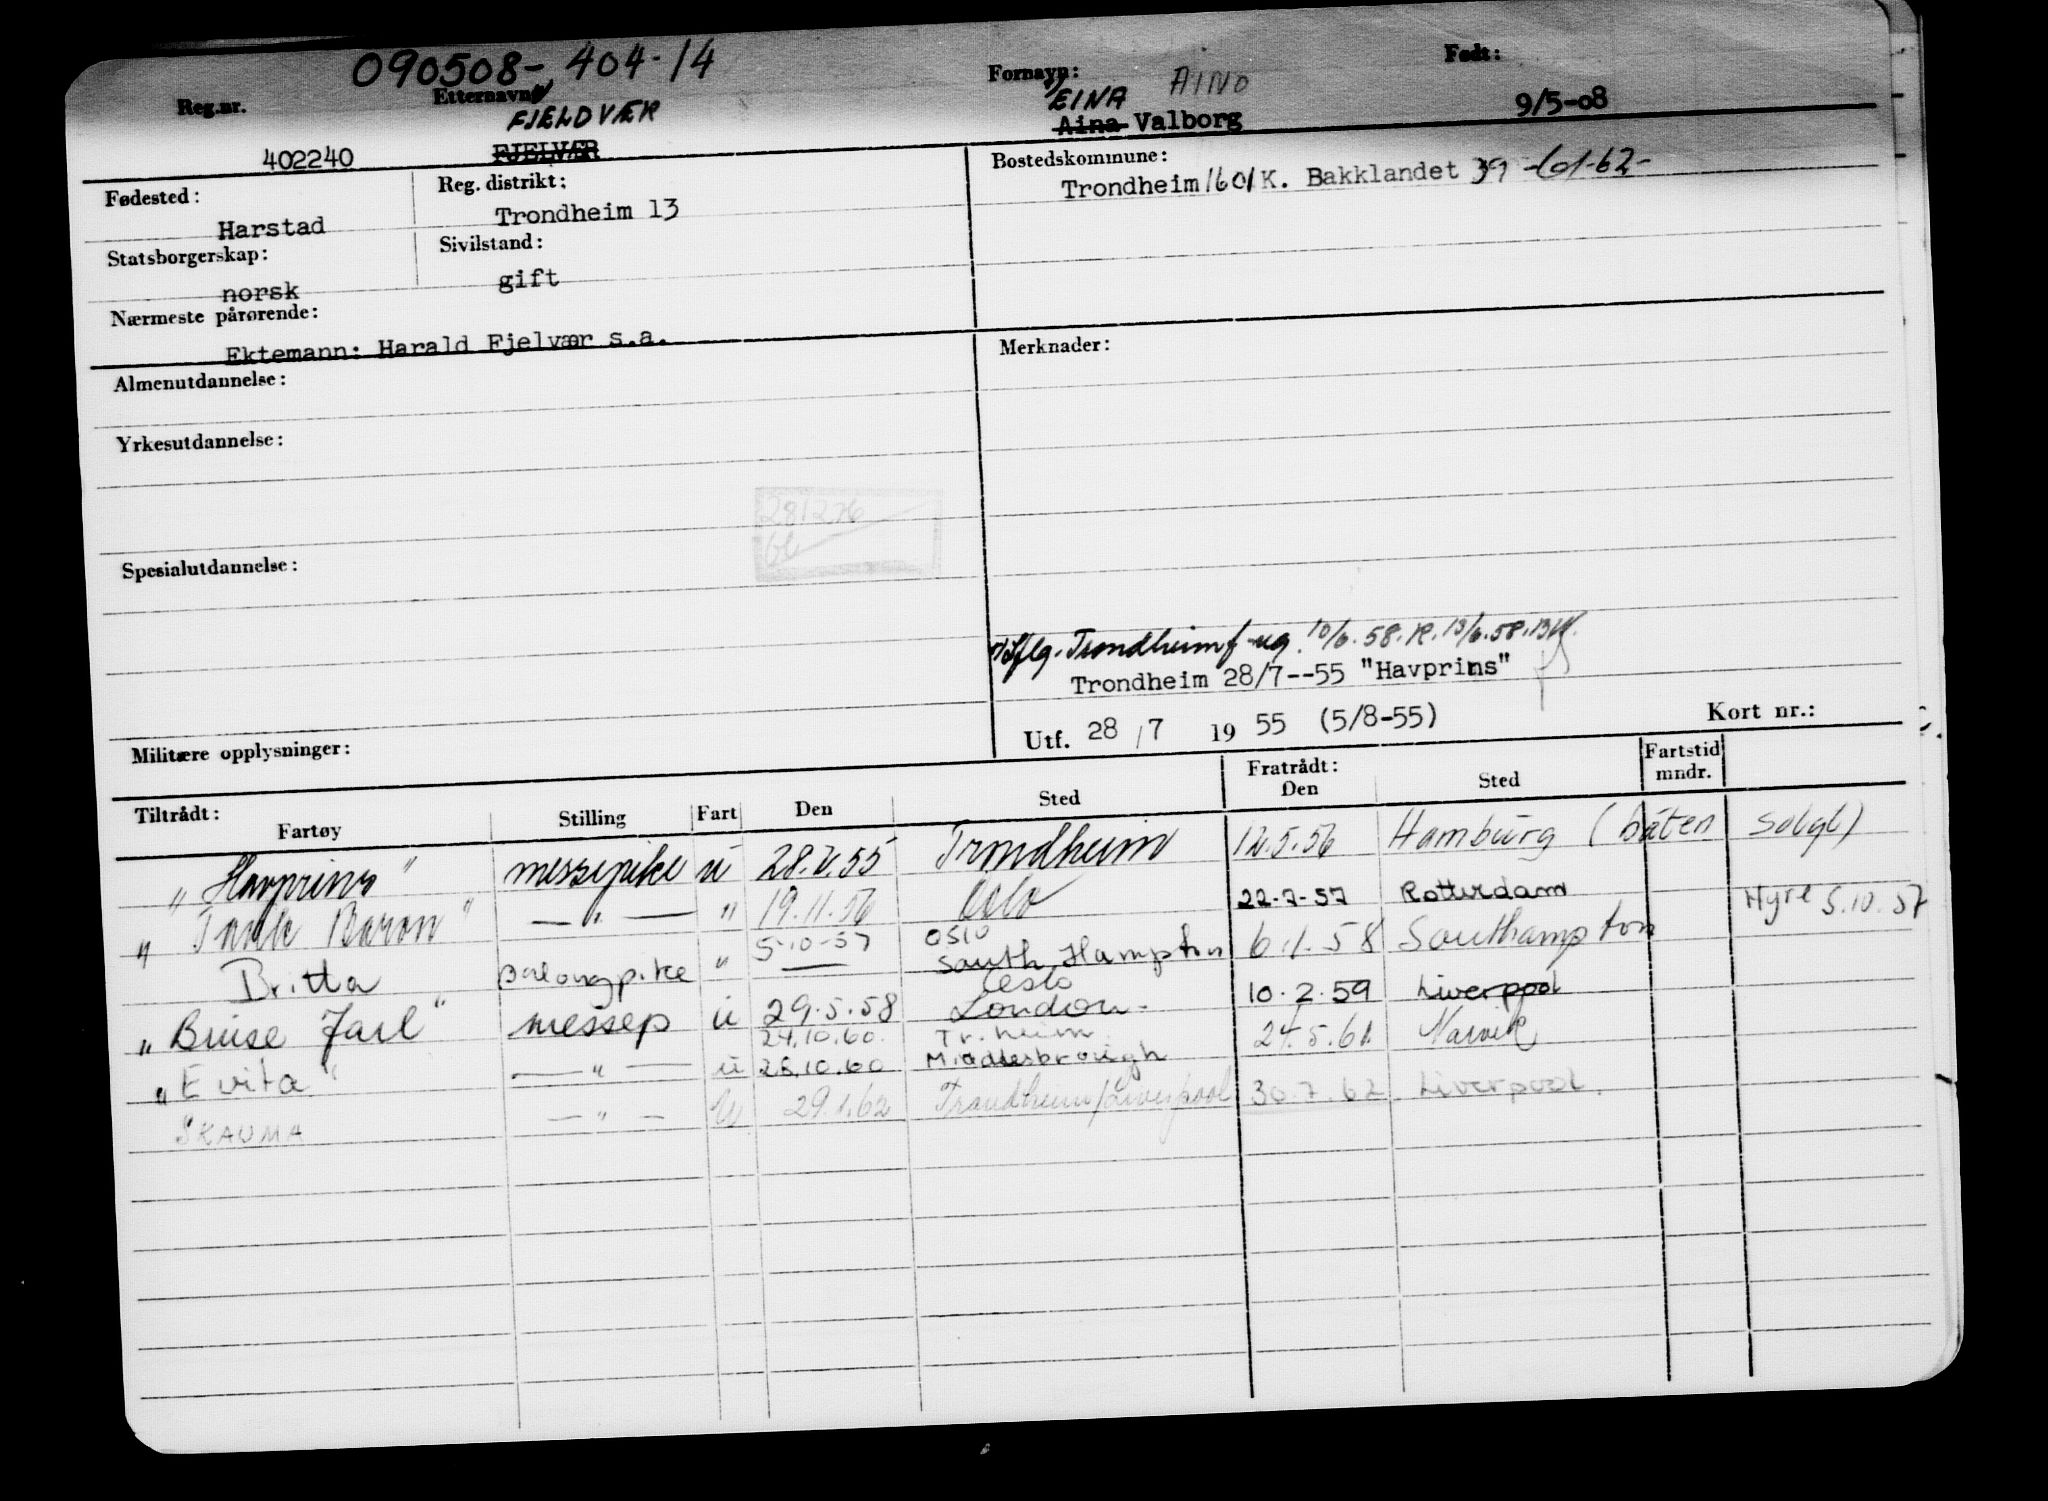 090508-404-14
Reg.nr. Etternavn: Fornavn: AINO Født:
FJELDVÆR EINA
402240 FJELVÆR Aina Valborg 9/5-08
Fødested: Reg. distrikt: Bostedskommune:
Harstad Trondheim 13 Trondheim 1601 K. Bakklandet 39 -101-62-
Statsborgerskap: Sivilstand:
norsk gift
Nærmeste pårørende:
Ektemann: Harald Fjelvær s.a.
Almenutdannelse: Merknader:
Yrkesutdannelse:
281276
Spesialutdannelse:
Trondheim 10/6.58. 13/6.58.
Trondheim 28/7--55 "Havprins"
Militære opplysninger: Utf. 28 / 7 19 55 (5/8-55) Kort nr.:
Tiltrådt: Fratrådt: Fartstid
Fartøy Stilling Fart Den Sted Den Sted mndr.
"Havprins" messepike u 28.7.55 Trondheim 12.5.56 Hamburg (båten solgt)
"Tank Baron" — " — " 19.11.56 Oslo 22-7-57 Rotterdam Hyre 5.10.57
5-10-57 Oslo
" Britta " — South Hampton 6.1.58 Southampton
Oslo
"Bruse Jarl" messep u 29.5.58 London - 10.2.59 Liverpool
24.10.60. Tr.heim
"Evita" — " — u 26.10.60 Middlesbrough 24.5.61 Narvik
"SKAUMA — " — U 29.1.62 Trondheim/Liverpool 30.7.62 Liverpool.